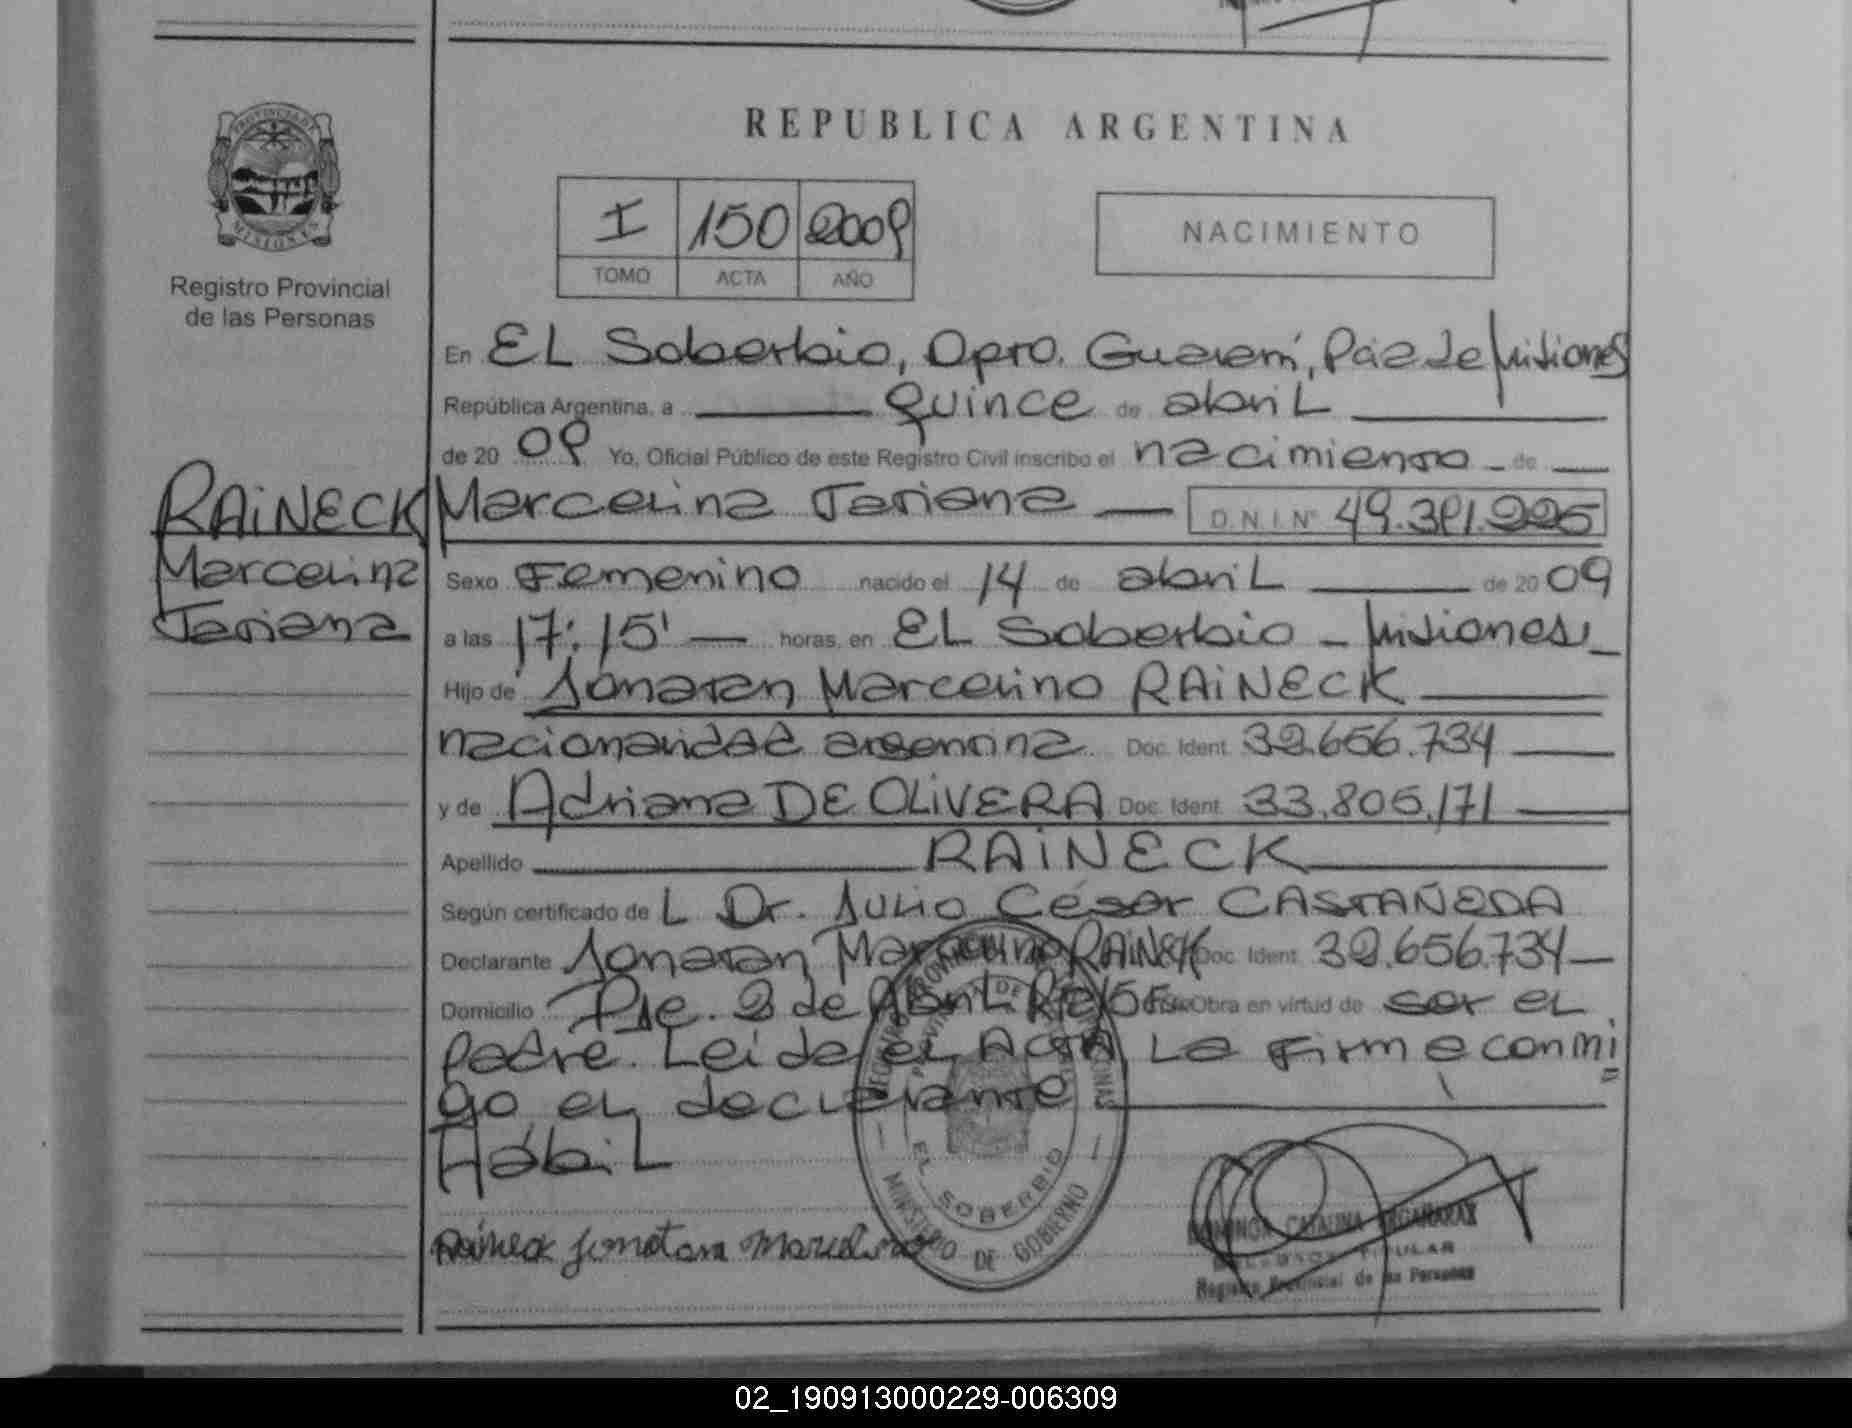 REPUBLICA ARGENTINA
PROVINCIA DE
MISIONES
Registro Provincial
de las Personas
I 150 2009
TOMO ACTA AÑO
NACIMIENTO
En EL Soberbio, Dpto. Guaraní, Pcia de Misiones
República Argentina, a quince de abril
de 20 09 Yo, Oficial Público de este Registro Civil inscribo el nacimiento de
RAINECK
Marcelina
Tatiana
Marcelina Tatiana D.N.I. Nº 49.391.225
Sexo Femenino nacido el 14 de abril de 20 09
a las 17:15' horas, en EL Soberbio - Misiones
Hijo de Jonatan Marcelino RAINECK
nacionalidad argentina Doc. Ident. 32.656.734
y de Adriana DE OLIVERA Doc. Ident. 33.805.171
Apellido RAINECK
Según certificado de L Dr. Julio César CASTAÑEDA
Declarante Jonatan Marcelino RAINECK Doc. Ident. 32.656.734
Domicilio 2 de Abril Obra en virtud de ser el
padre. Leída el ACTA La Firma conmi
go el declarante
Hábil
Raineck Jonatan Marcelino
EL SOBERBIO
MINISTERIO DE GOBIERNO
CATALINA
TITULAR
Registro Provincial de las Personas
02_190913000229-006309